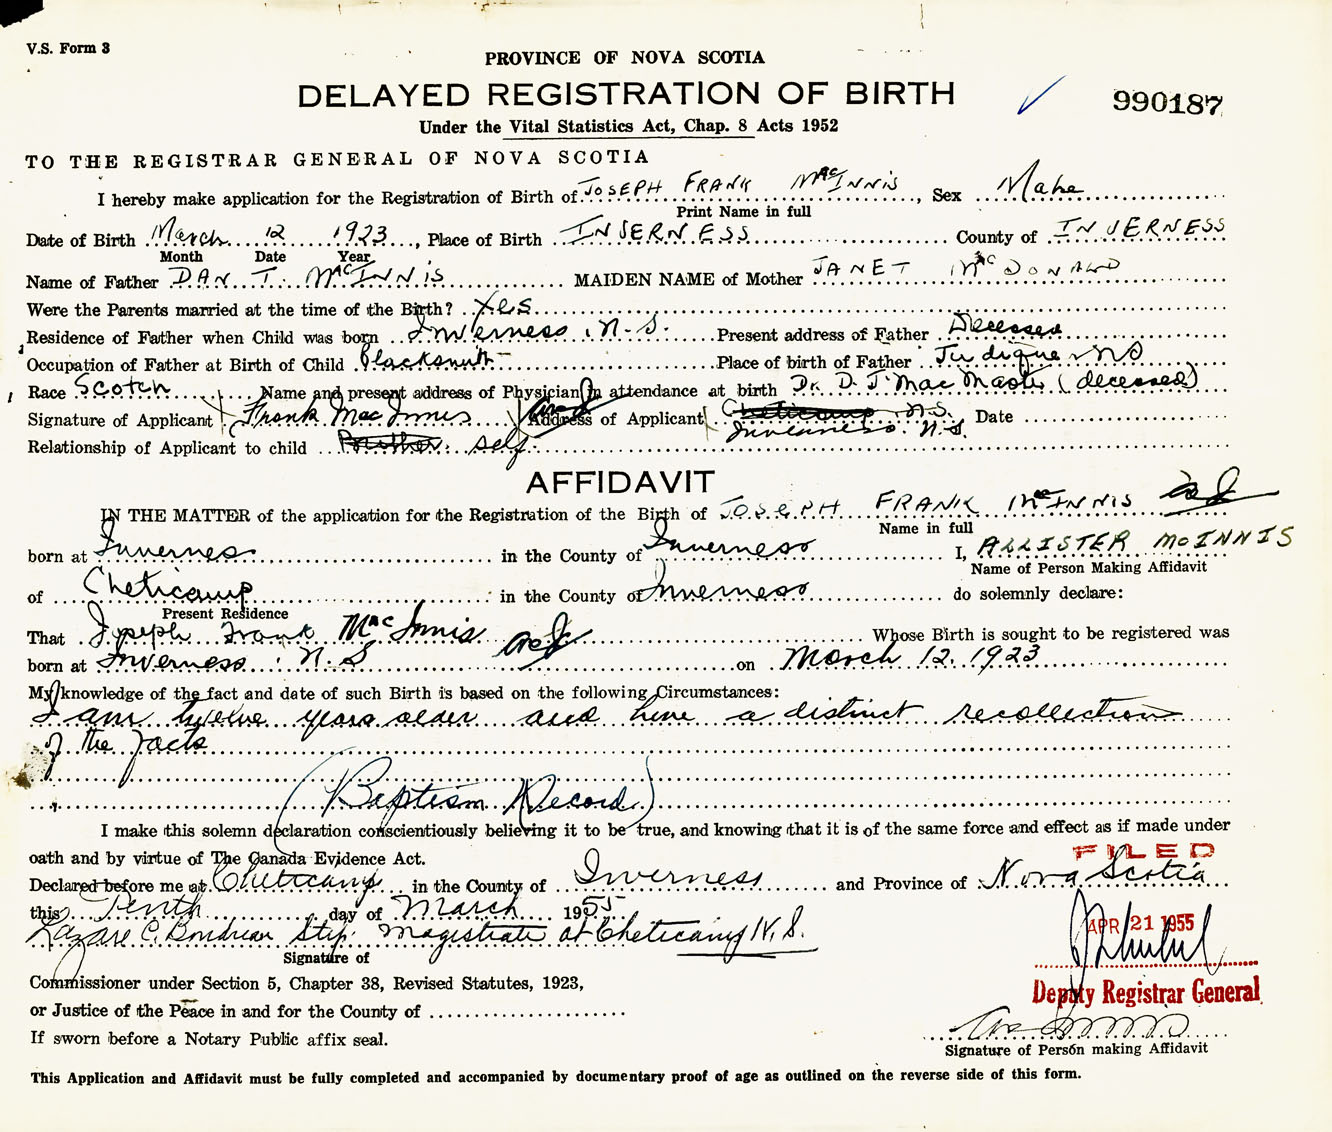 V.S. Form 3
PROVINCE OF NOVA SCOTIA
DELAYED REGISTRATION OF BIRTH
990187
Under the Vital Statistics Act, Chap. 8 Acts 1952
TO THE REGISTRAR GENERAL OF NOVA SCOTIA
I hereby make application for the Registration of Birth of JOSEPH FRANK MacINNIS, Sex Male
Print Name in full
Date of Birth March 12 1923, Place of Birth INVERNESS County of INVERNESS
Month Date Year
Name of Father DAN T. MacINNIS MAIDEN NAME of Mother JANET MacDONALD
Were the Parents married at the time of the Birth? Yes
Residence of Father when Child was born Inverness, N.S. Present address of Father Deceased
Occupation of Father at Birth of Child Blacksmith Place of birth of Father Judique NS
Race Scotch Name and present address of Physician in attendance at birth Dr. D. J. MacMaster (deceased)
Signature of Applicant Frank MacInnis Address of Applicant Cheticamp N.S. Date
Inverness. N.S.
Relationship of Applicant to child Brother. self
AFFIDAVIT
IN THE MATTER of the application for the Registration of the Birth of JOSEPH FRANK MacINNIS
Name in full
born at Inverness in the County of Inverness I, ALLISTER McINNIS
Name of Person Making Affidavit
of Cheticamp in the County of Inverness do solemnly declare:
Present Residence
That Joseph Frank MacInnis Whose Birth is sought to be registered was
born at Inverness N.S on March 12. 1923
My knowledge of the fact and date of such Birth is based on the following Circumstances:
I am twelve years older and have a distinct recollection
of the facts
(Baptism Record)
I make this solemn declaration conscientiously believing it to be true, and knowing that it is of the same force and effect as if made under
oath and by virtue of The Canada Evidence Act.
FILED
Declared before me at Cheticamp in the County of Inverness and Province of Nova Scotia
this Tenth day of March 1955
APR 21 1955
Lazare C. Boudreau Stip. Magistrate at Cheticamp N.S.
Signature of
Commissioner under Section 5, Chapter 38, Revised Statutes, 1923,
Deputy Registrar General
or Justice of the Peace in and for the County of
If sworn before a Notary Public affix seal.
Signature of Person making Affidavit
This Application and Affidavit must be fully completed and accompanied by documentary proof of age as outlined on the reverse side of this form.